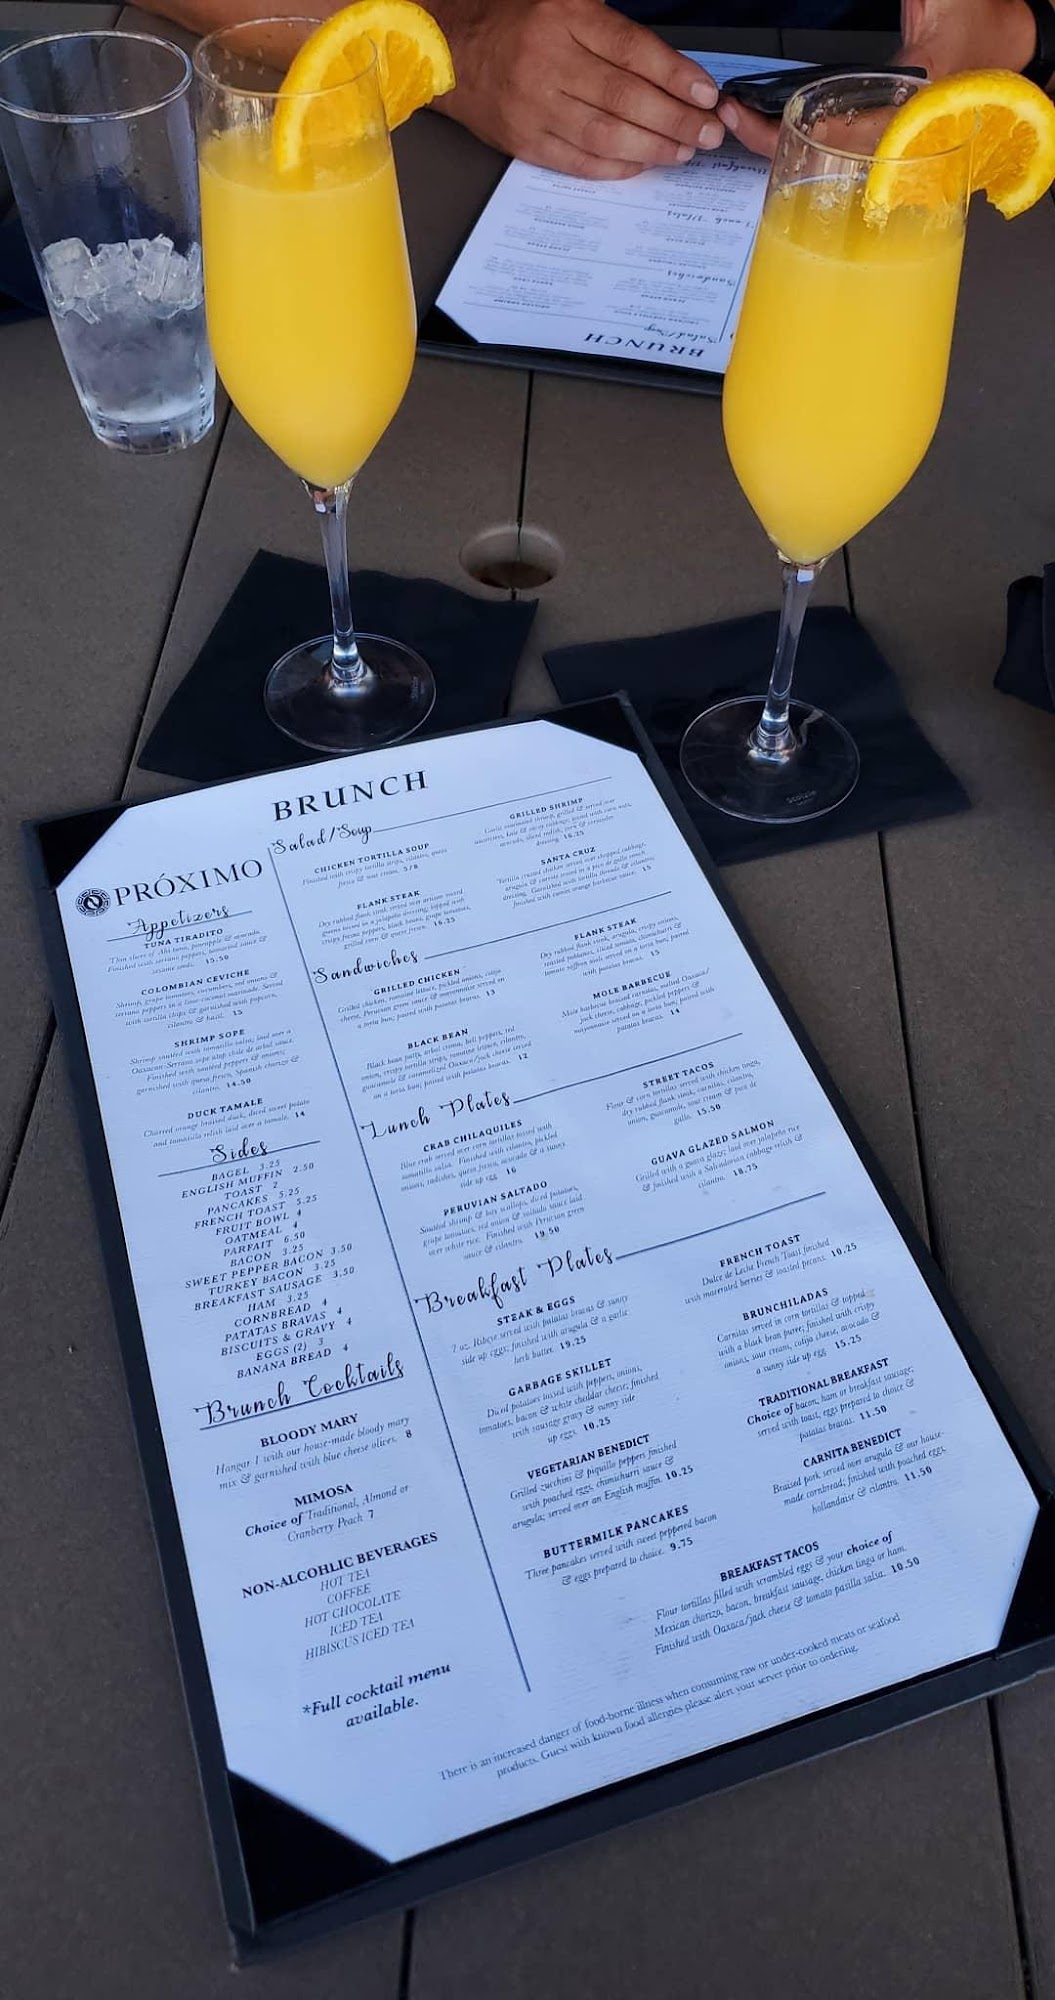 BRUNCH
PRÓXIMO
Appetizers
TUNA TIRADITO
Thin slices of Ahi tuna, pineapple & avocado.
Finished with serrano peppers, tamarind sauce &
sesame seeds. 15.50
COLOMBIAN CEVICHE
Shrimp, grape tomatoes, cucumbers, red onions &
serrano peppers in a lime-coconut marinade. Served
with tortilla chips & garnished with popcorn,
cilantro & basil. 15
SHRIMP SOPE
Shrimp sautéed with tomatillo salsa; laid over a
Oaxacan-Serrano sope atop chile de arbol sauce.
Finished with sautéed peppers & onions;
garnished with queso fresco, Spanish chorizo &
cilantro. 14.50
DUCK TAMALE
Charred orange braised duck, diced sweet potato
and tomatillo relish laid over a tamale. 14
Sides
BAGEL 3.25
ENGLISH MUFFIN 2.50
TOAST 2
PANCAKES 5.25
FRENCH TOAST 5.25
FRUIT BOWL 4
OATMEAL 4
PARFAIT 6.50
BACON 3.25
SWEET PEPPER BACON 3.50
TURKEY BACON 3.25
BREAKFAST SAUSAGE 3.50
HAM 3.25
CORNBREAD 4
PATATAS BRAVAS 4
BISCUITS & GRAVY 4
EGGS (2) 3
BANANA BREAD 4
Brunch Cocktails
BLOODY MARY
Hangar 1 with our house-made bloody mary
mix & garnished with blue cheese olives. 8
MIMOSA
Choice of Traditional, Almond or
Cranberry Peach 7
NON-ALCOHLIC BEVERAGES
HOT TEA
COFFEE
HOT CHOCOLATE
ICED TEA
HIBISCUS ICED TEA
*Full cocktail menu
available.
Salad/Soup
CHICKEN TORTILLA SOUP
Finished with crispy tortilla strips, cilantro, queso
fresco & sour cream. 5/8
FLANK STEAK
Dry rubbed flank steak served over artisan mixed
greens tossed in a jalapeño dressing, topped with
crispy fresno peppers, black beans, grape tomatoes,
grilled corn & queso fresco. 16.25
GRILLED SHRIMP
Garlic marinated shrimp, grilled & served over
avocado, sliced radish, corn & coriander
dressing. 16.25
SANTA CRUZ
Tortilla crusted chicken served over chopped cabbage,
arugula & carrots tossed in a pico de gallo ranch
dressing. Garnished with tortilla threads & cilantro;
finished with carrot orange barbecue sauce. 15
Sandwiches
GRILLED CHICKEN
Grilled chicken, romaine lettuce, pickled onions, cotija
cheese, Peruvian green sauce & mayonnaise served on
a torta bun; paired with patatas bravas. 13
BLACK BEAN
Black bean patty, arbol crema, bell peppers, red
onion, crispy tortilla strips, romaine lettuce, cilantro,
guacamole & caramelized Oaxaca/jack cheese served
on a torta bun; paired with patatas bravas. 12
FLANK STEAK
Dry rubbed flank steak, arugula, crispy onions,
roasted poblanos, sliced tomato, chimichurri &
tomato saffron aioli served on a torta bun; paired
with patatas bravas. 15
MOLE BARBECUE
Mole barbecue braised carnitas, melted Oaxaca/
jack cheese, cabbage, pickled peppers &
mayonnaise served on a torta bun; paired with
patatas bravas. 14
Lunch Plates
CRAB CHILAQUILES
Blue crab served over corn tortillas tossed with
tomatillo salsa. Finished with cilantro, pickled
onions, radishes, queso fresco, avocado & a sunny
side up egg. 16
PERUVIAN SALTADO
Sautéed shrimp & bay scallops, diced potatoes,
grape tomatoes, red onion & saltado sauce laid
over white rice. Finished with Peruvian green
sauce & cilantro. 19.50
STREET TACOS
Flour & corn tortillas served with chicken tinga,
dry rubbed flank steak, carnitas, cilantro,
onion, guacamole, sour cream & pico de
gallo. 15.50
GUAVA GLAZED SALMON
Grilled with a guava glaze; laid over jalapeño rice
& finished with a Salvadorian cabbage relish &
cilantro. 18.75
Breakfast Plates
STEAK & EGGS
7 oz. Ribeye served with patatas bravas & sunny
side up eggs; finished with arugula & a garlic
herb butter. 19.25
GARBAGE SKILLET
Diced potatoes tossed with peppers, onions,
tomatoes, bacon & white cheddar cheese; finished
with sausage gravy & sunny side
up eggs. 10.25
VEGETARIAN BENEDICT
Grilled zucchini & piquillo peppers finished
with poached eggs, chimichurri sauce &
arugula; served over an English muffin. 10.25
BUTTERMILK PANCAKES
Three pancakes served with sweet peppered bacon
& eggs prepared to choice. 9.75
FRENCH TOAST
Dulce de Leche French Toast finished
with macerated berries & toasted pecans. 10.25
BRUNCHILADAS
Carnitas served in corn tortillas & topped
with a black bean puree; finished with crispy
onions, sour cream, cotija cheese, avocado &
a sunny side up egg. 15.25
TRADITIONAL BREAKFAST
Choice of bacon, ham or breakfast sausage;
served with toast, eggs prepared to choice &
patatas bravas. 11.50
CARNITA BENEDICT
Braised pork served over arugula & our house-
made cornbread; finished with poached eggs,
hollandaise & cilantro. 11.50
BREAKFAST TACOS
Flour tortillas filled with scrambled eggs & your choice of
Mexican chorizo, bacon, breakfast sausage, chicken tinga or ham.
Finished with Oaxaca/jack cheese & tomato pasilla salsa. 10.50
There is an increased danger of food-borne illness when consuming raw or under-cooked meats or seafood
products. Guest with known food allergies please alert your server prior to ordering.
BRUNCH
Salad/Soup
Sandwiches
Lunch Plates
Breakfast Plates